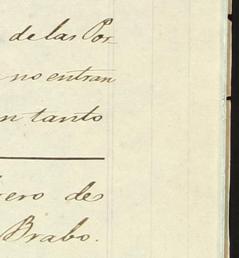 de las Por-
no entran
n tanto
ero de
Brabo.